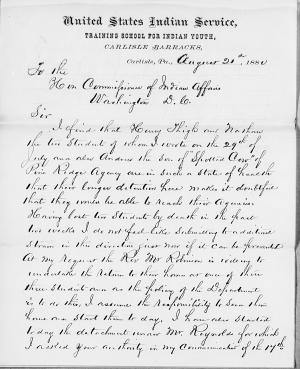 United States Indian Service,
TRAINING SCHOOL FOR INDIAN YOUTH,
CARLISLE BARRACKS,
Carlisle, Pa., August 21st, 1880
To the
Hon Commissioner of Indian Affairs
Washington D. C.
Sir
I find that Henry and
the two Student of whom I wrote on the 29th of
July and also Andrew the son of "Spotted Cow" of
Pine Ridge Agency are in such a state of health
that their longer detention here makes it doubtful
that they would be able to reach their Agencies
Having lost two Student by death in the past
two weeks I do not feel like submitting to additional
strain in this direction just now if it can be prevented
At my request the Rev Mr Robinson is willing to
undertake the return to their home at once of these
three student and as the policy of the Department
is to do this, I assume the responsibility to send them
home and start them to day. I have also started
to day the detachment under Mr. Reynolds for which
I asked your authority in my Communication of the 17th